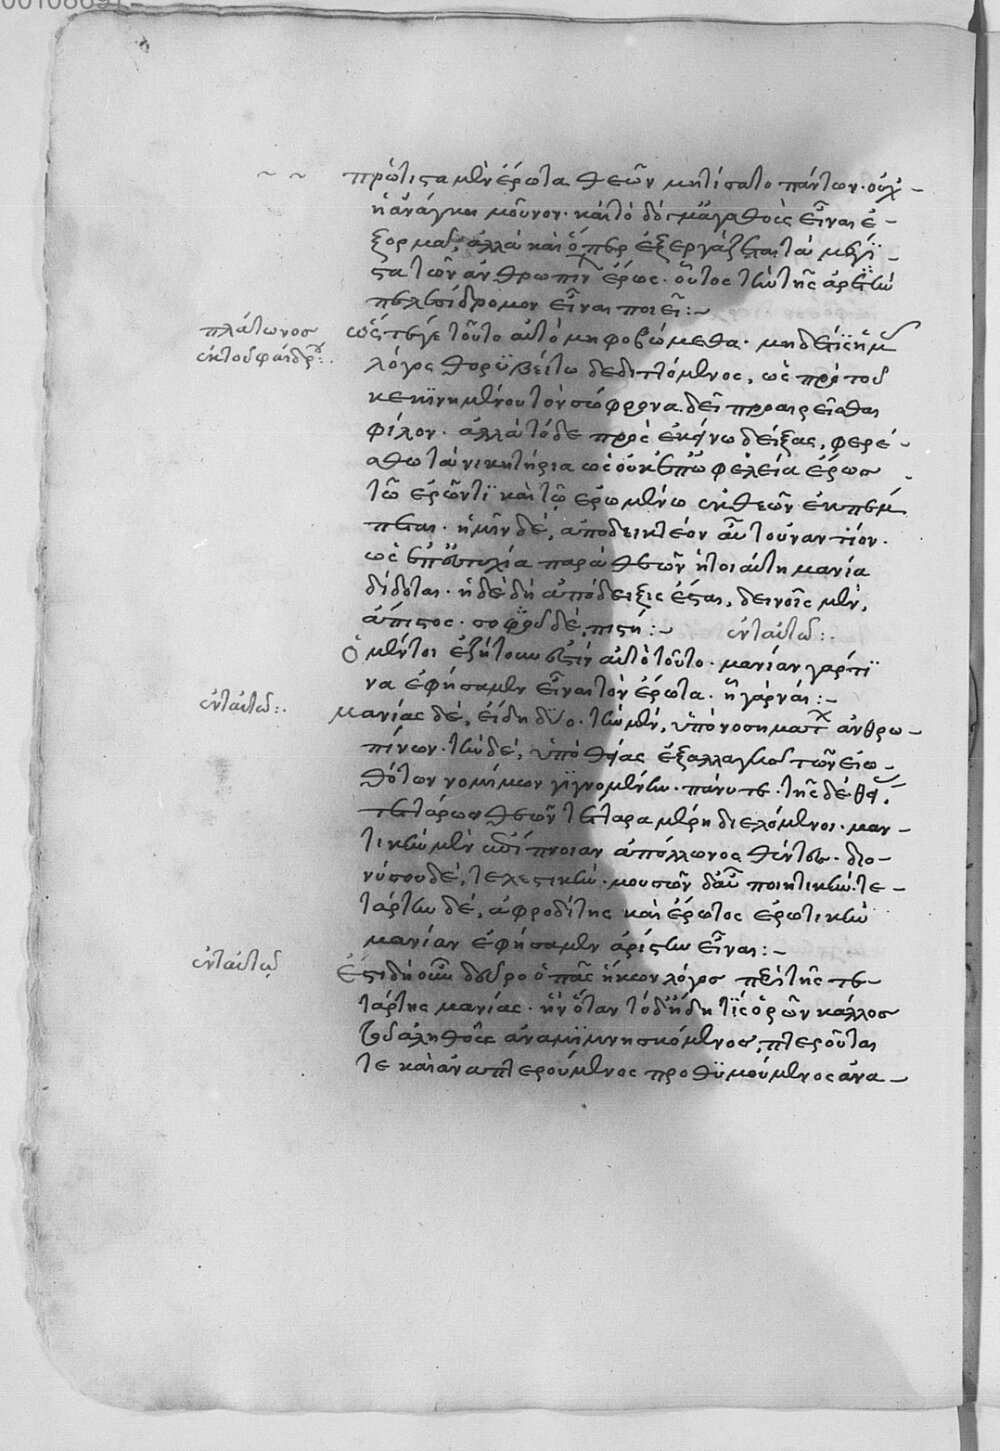 πρώτιςα μὲν ἔρωτα θεῶν μητίσατο πάντων· οὐχ
ἡ ἀνάγκη μοῦνον· καὶ τὸ
ἀλλὰ καὶ ὅπερ ἐξεργάζεται τὰ μεγί
ςα τῶν ἀνθρωπίν ἔρως· οὗτος τὴν τῆς
δρομον εἶναι ποιεῖ:~
πλάτωνοσ
ἐκτουφαίδρ:
ὥςτεγε τοῦτο αὐτὸ μὴ φοβώμεθα· μηδέτις ἡμ
λόγος θορυβείτω δεδιττόμενος, ὡς πρὸ τοῦ
κεκινημένου τὸν σώφρονα δεῖ προαιρεῖσθαι
φίλον· ἀλλὰ τόδε πρὸς ἐκείνω δείξας, φερέ
σθω τὰ νικητήρια ὡς οὐκ ἐπωφελεία ἔρωσ
τῶ ἐρῶντι καὶ τῶ ἐρωμένω ἐκ θεῶν ἐκπέμ
πεται· ἡμῖν δέ, ἀποδεικτέον αὖ τοὐναντίον·
ὡς ἐπευτυχία παρὰ θεῶν ἡ τοιαύτη μανία
δίδοται· ἡ δὲ δὴ ἀπόδειξις ἔςαι, δεινοῖς μὲν,
ἄπιςος· σοφοῖς δέ, πιςή:~ ἐνταὐτῶ:.
ὃ μέντοι ἐζήτουν αὐτὸ τοῦτο· μανίαν γάρ τι
να ἐφήσαμεν εἶναι τὸν ἔρωτα· ἢ γάρ ναί:~
ἐνταὐτῶ:.
μανίας δέ, εἴδη δύο· τὴν μέν, ὑπὸ νοσημάτ ἀνθρω
πίνων· τὴν δέ, ὑπὸ θείας ἐξαλλαγῆς τῶν εἰω
θότων νομίμων γιγνομένην· πάνυ γε· τῆς δὲ θεί
τεττάρων θεῶν τέτταρα μέρη διελόμενοι· μαν
τικὴν μὲν ἐπίπνοιαν ἀπόλλωνος θέντες· διο
νύσου δέ, τελεςικήν· μουσῶν δ᾽ αὖ ποιητικήν· τε
τάρτην δέ, ἀφροδίτης καὶ ἔρωτος ἐρωτικὴν
μανίαν ἐφήσαμεν ἀρίςην εἶναι:~
ἐνταὐτῶ
ἔςι δὴ οὖν δεῦρο ὁ πᾶς ἥκων λόγοσ περὶ τῆς τε
τάρτης μανίας· ἣν ὅταν τὸ δήδη τὶς ὁρῶν κάλλοσ
τοῦ ἀληθοῦς ἀναμιμνησκόμενοσ, πτερούται
τε καὶ ἀναπτερούμενος προθυμούμενος ἀνα